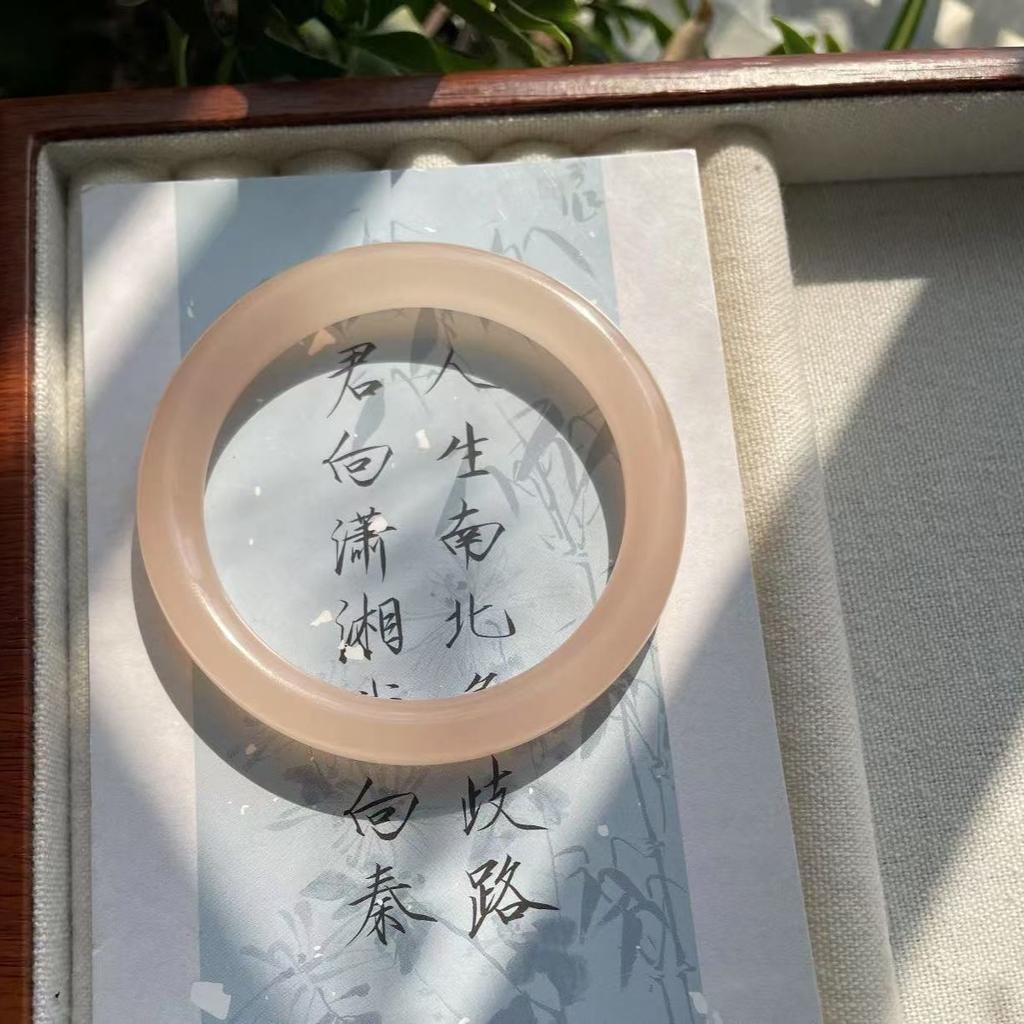 人生南北歧路
君向潇湘向秦